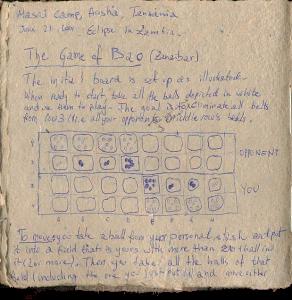 Masai Camp, Arusha, Tanzania
June 21 2001. Eclipse in Zambia.
The Game of Bao (Zanzibar)
The initial board is set up as illustrated.
When ready to start, take all the balls depicted in white
and use them to play. The goal is to eliminate all balls
from row 3 (i.e. all your opponent's middle row's balls.
OPPONENT
YOU
To move you take a ball from your personal stash and put
it into a field that is yours with more than zero 1 ball in
it (2 or more). Then you take all the balls of that
field (including the one you just put in) and move either